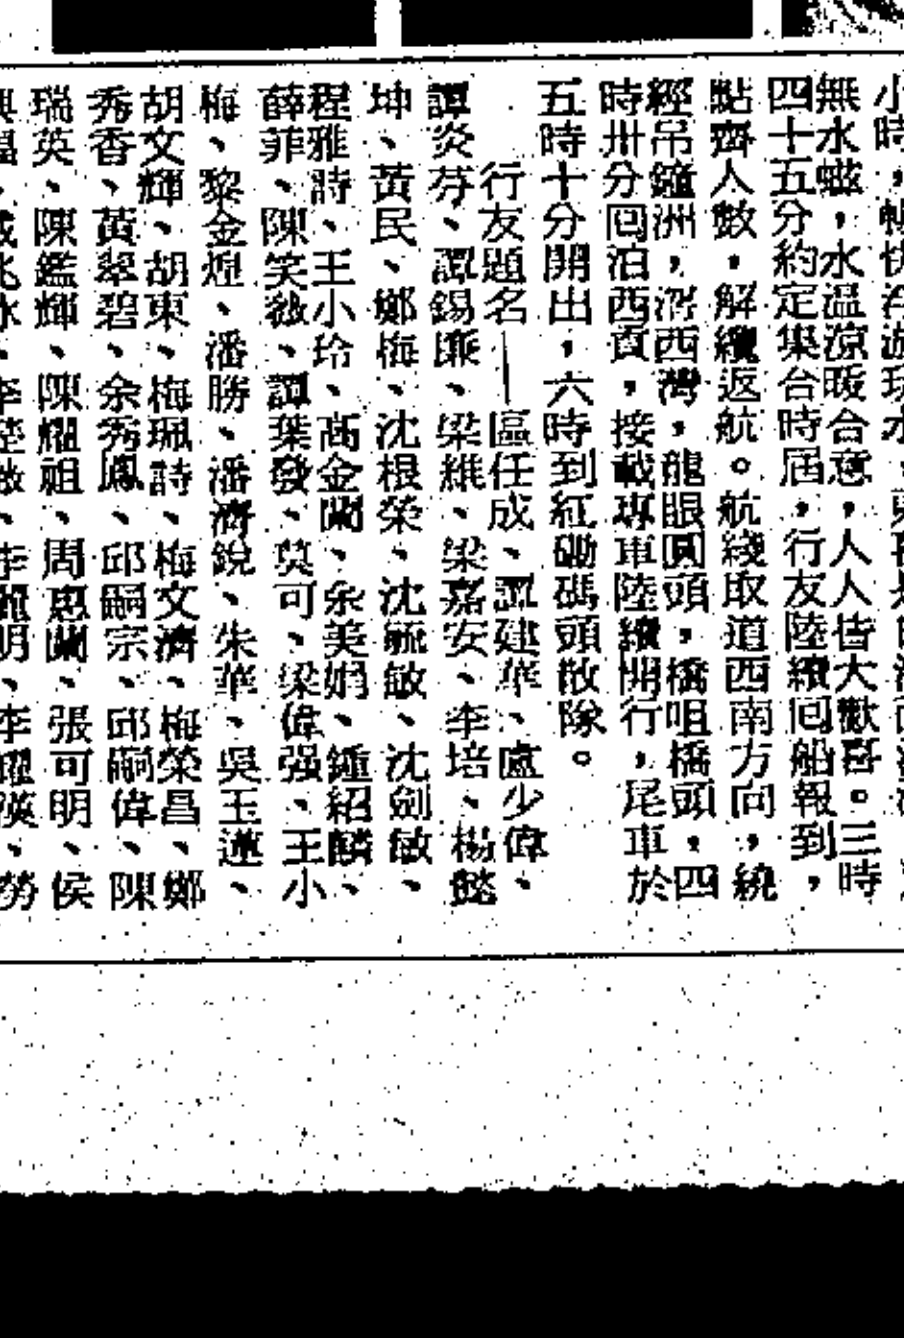 小時，
無水蟣，水溫涼暖合意，人人皆大歡喜。三時
四十五分約定集合時屆，行友陸續囘船報到，
點齊人數，解纜返航。航綫取道西南方向，繞
經吊鐘洲，滘西灣，龍眼圓頭，橋咀橋頭，四
時卅分囘泊西貢，接載專車陸續開行，尾車於
五時十分開出，六時到紅磡碼頭散隊。
行友題名—區任成、譚建華、盧少偉、
譚炎芬、譚錫廉、梁維、梁嘉安、李培、楊懿
坤、黃民、鄭梅、沈根榮、沈毓敏、沈劍敏、
程雅詩、王小玲、高金蘭、余美娟、鍾紹麟、
薛菲、陳笑薇、譚葉發、莫可、梁偉强、王小
梅、黎金煌、潘勝、潘濟銳、朱華、吳玉蓮、
胡文輝、胡東、梅珮詩、梅文濟、梅榮昌、鄭
秀香、黃翠碧、余秀鳳、邱嗣宗、邱嗣偉、陳
瑞英、陳鑑輝、陳耀祖、周惠蘭、張可明、侯